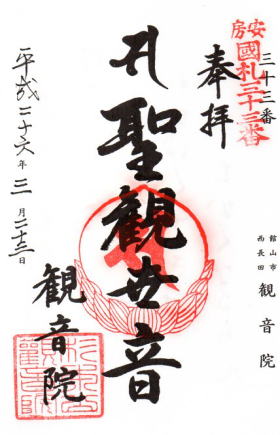 三十三番
安房
國札三十三番
奉拝
聖観世音
平成二十六年三月二十三日
観音院
館山市
西長田
観音院